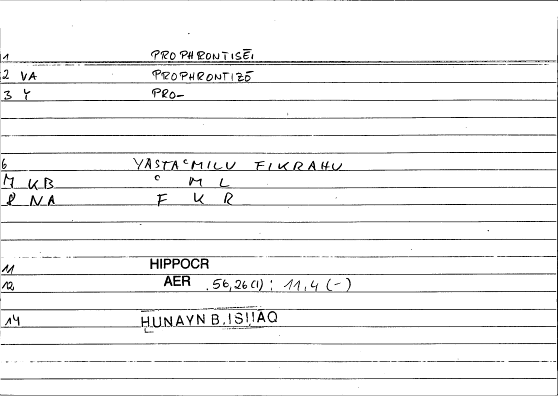 1 PROPHRONTISĒI
2 VA PROPHRONTIZŌ
3 Y PRO-
6 YASTAʿMILU FIKRAHU
M KB ʿ M L
P NA F K R
11 HIPPOCR
12 AER .56,26(1) : 11,4 (-)
14 HUNAYN B. ISḤĀQ